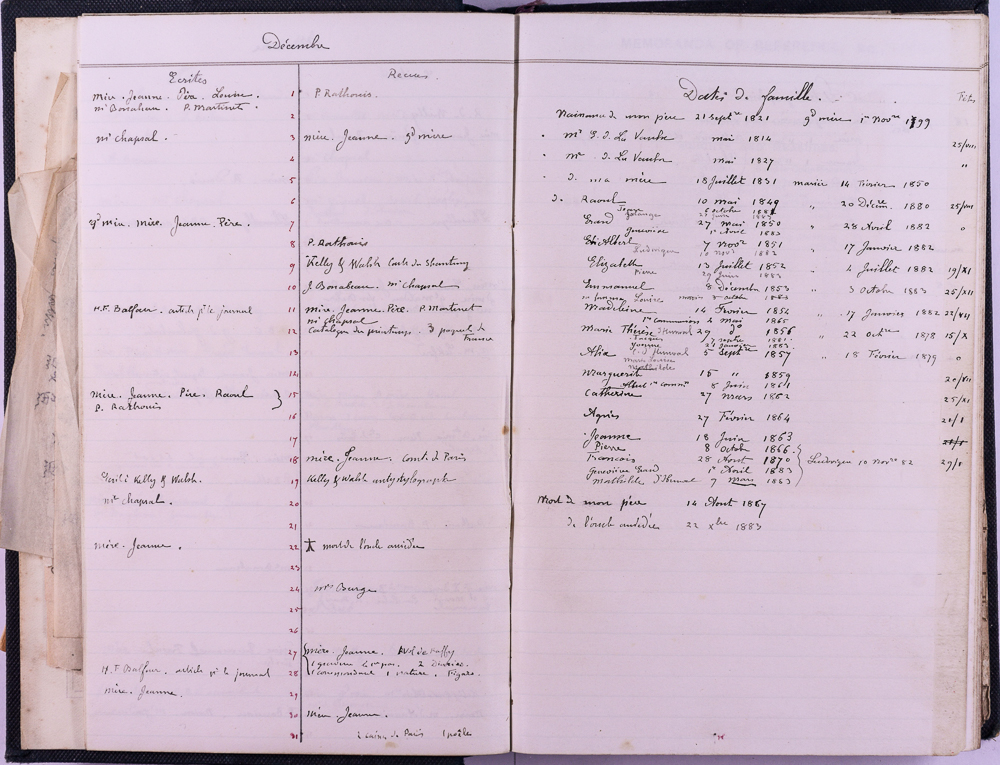 Décembre
Ecrites
Recues
mère. Jeanne. Père. Louise.
1
P. Rathouis.
mr Bonabeau. P. Martinet.
2
mr Chapsal.
3
mère. Jeanne. gd mère
4
5
6
gd mère. mère. Jeanne. Père.
7
8
P. Rathouis
9
Kelly & Walsh Carte du Shantung
10
J. Bonabeau. mr Chapsal
H.F. Balfour. article pr le journal
11
mère. Jeanne. Père. P. Martinet
mr Chapsal
12
Catalogue du printemps. 3 paquets de
France
13
14
mère. Jeanne. Père. Raoul
15
P. Rathouis
16
17
18
mère. Jeanne. Comte de Paris
Kelly & Walsh.
19
Kelly & Walsh antystylograph
mr Chapsal.
20
21
mère. Jeanne.
22
mort de l'oncle amédée
23
24
mrs Burge
25
26
27
mère. Jeanne.
H.F Balfour. article pr le journal
28
Figaro.
mère. Jeanne.
29
30
mère. Jeanne.
31
de Paris 1 poële
Dates de famille.
Fêtes
Naissance de mon père 21 septre 1821 gd mère 1er Novre 1799
mr de La Vaulx mai 1814
25/VII
me de La Vaulx mai 1827
"
de ma mère 18 Juillet 1831 mariée 14 Février 1850
de Raoul 10 mai 1849 " 20 Décem. 1880 25/VII
27 mai 1850 " 28 Avril 1882
Geneviève 1er Avril 1883
Albert 7 novre 1851 " 17 Janvier 1882
Ludovique 10 Novr 1882
Elizabeth 13 Juillet 1852 " 4 Juillet 1882 19/XI
Pierre 29 Juin 1883
Emmanuel 8 Décembre 1853 " 3 Octobre 1883 25/XII
Madeleine 14 Février 1854 " 17 Janvier 1882 22/VII
1ère Communion 2 mai 1865
Marie Thérèse d'Hunval 29 do 1856 " 22 Octre 1878 15/X
Jacques 7 septre 1881
Yvonne 21 Janvier 1883
Alix 5 Septre 1857 " 18 Février 1879
Mathilde
Marguerite 15 " 1859 20/VII
8 Juin 1861
Catherine 27 mars 1862 25/XI
Agnès 27 Février 1864 21/1
Jeanne 18 Juin 1863
Pierre 8 Octob 1866
François 28 Août 1870
Ludovique 10 Novre 82
29/1
Geneviève 1er Avril 1883
Mathilde d'Hunval 7 Mars 1883
Mort de mon père 14 Août 1867
de l'oncle amédée 22 Xbre 1883